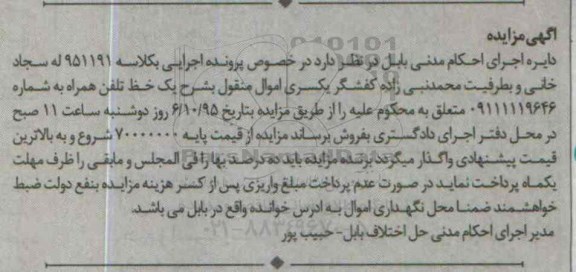 آگهی مزایده
دایره اجرای احکام مدنی بابل در نظر دارد در خصوص پرونده اجرایی بکلاسه ۹۵۱۱۹۱ له سجاد
خانی و بطرفیت محمدنبی زاده کفشگر یکسری اموال منقول بشرح یک خط تلفن همراه به شماره
۰۹۱۱۱۱۱۹۶۴۶ متعلق به محکوم علیه را از طریق مزایده بتاریخ ۶/۱۰/۹۵ روز دوشنبه ساعت ۱۱ صبح
در محل دفتر اجرای دادگستری بفروش برساند مزایده از قیمت پایه ۷۰۰۰۰۰۰۰ شروع و به بالاترین
قیمت پیشنهادی واگذار میگردد برنده مزایده باید ده درصد بها را فی المجلس و مابقی را ظرف مهلت
یکماه پرداخت نماید در صورت عدم پرداخت مبلغ واریزی پس از کسر هزینه مزایده بنفع دولت ضبط
خواهشمند ضمنا محل نگهداری اموال به ادرس خوانده واقع در بابل می باشد.
مدیر اجرای احکام مدنی حل اختلاف بابل - حبیب پور